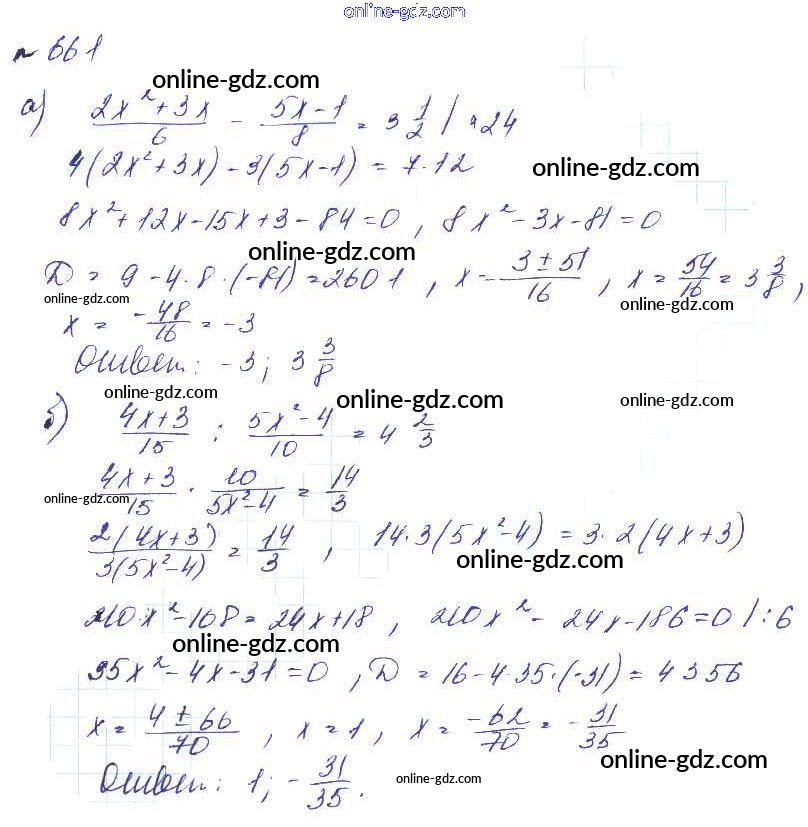 online-gdz.com
№ 661
online-gdz.com
а) (2x² + 3x)/6 - (5x-1)/8 = 3 1/2 | *24
online-gdz.com
4(2x² + 3x) - 3(5x-1) = 7·12
8x² + 12x - 15x + 3 - 84 = 0, 8x² - 3x - 81 = 0
online-gdz.com
D = 9 - 4·8·(-81) = 2601, x = (3 ± 51)/16, x = 54/16 = 3 3/8,
online-gdz.com online-gdz.com
x = -48/16 = -3
Ответ: -3; 3 3/8
online-gdz.com online-gdz.com online-gdz.com
б) (4x+3)/15 : (5x²-4)/10 = 4 2/3
(4x+3)/15 · 10/(5x²-4) = 14/3
online-gdz.com
2(4x+3)/3(5x²-4) = 14/3, 14·3(5x²-4) = 3·2(4x+3)
online-gdz.com
210x² - 168 = 24x + 18, 210x² - 24x - 186 = 0 | :6
online-gdz.com
35x² - 4x - 31 = 0, D = 16 - 4·35·(-31) = 4356
x = (4 ± 66)/70, x = 1, x = -62/70 = -31/35
online-gdz.com
Ответ: 1; -31/35.
online-gdz.com